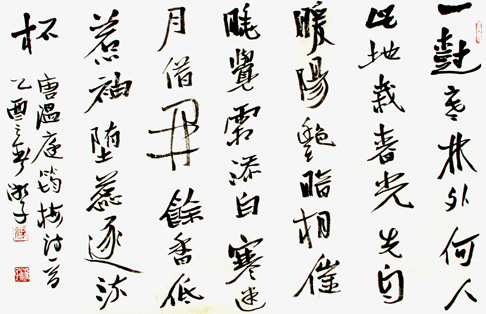 一樹寒林外何人
此地栽春光先自
暖陽艷暗相催
曉覺霜添白寒迷
月借開餘香低
惹袖墮蕊逐流
杯
唐溫庭筠梅詩一首
乙酉之年